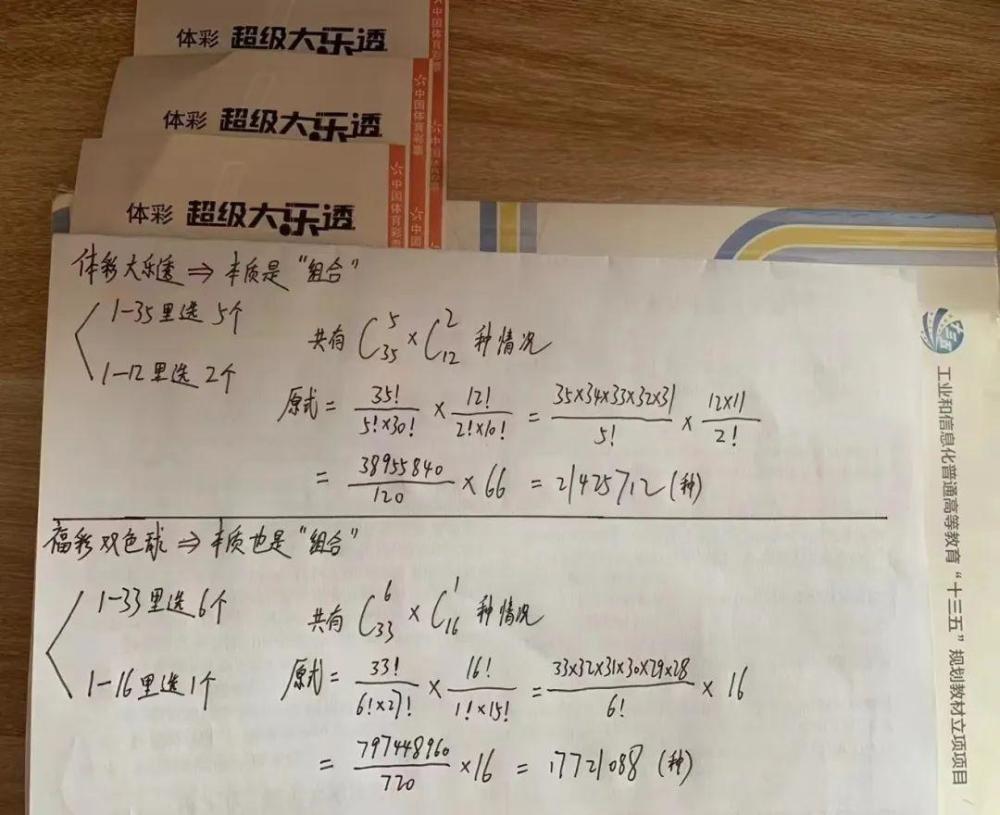 体彩 超级大乐透
中国体育彩票
体彩 超级大乐透
中国体育彩票
体彩 超级大乐透
中国体育彩票
体彩大乐透 ⇒ 本质是“组合”
1-35里选 5个
1-12里选 2个
共有 C₃₅⁵ × C₁₂² 种情况
原式 = 35!/(5!×30!) × 12!/(2!×10!) = (35×34×33×32×31)/5! × (12×11)/2!
= 38955840/120 × 66 = 21425712 (种)
福彩双色球 ⇒ 本质也是“组合”
1-33里选 6个
1-16里选 1个
共有 C₃₃⁶ × C₁₆¹ 种情况
原式 = 33!/(6!×27!) × 16!/(1!×15!) = (33×32×31×30×29×28)/6! × 16
= 797448960/720 × 16 = 17721088 (种)
工业和信息化普通高等教育“十三五”规划教材立项项目